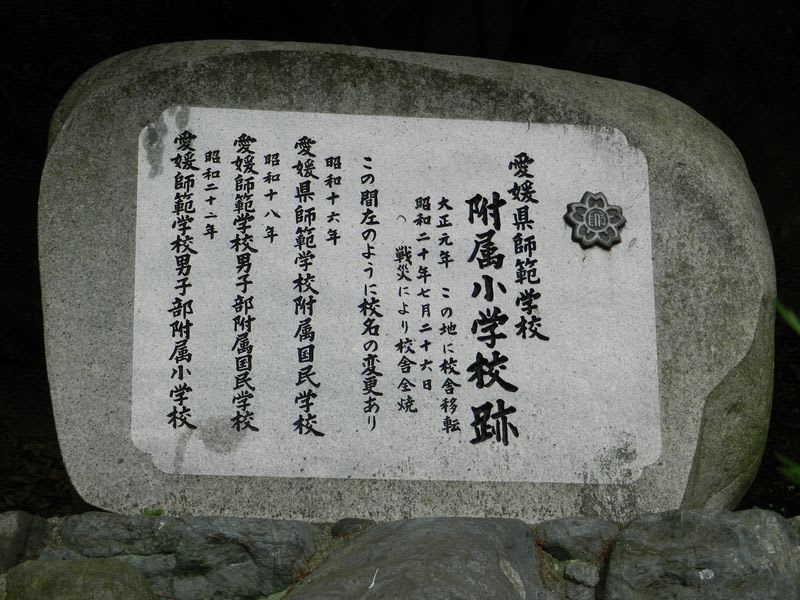 愛媛県師範学校
附属小学校跡
大正元年 この地に校舎移転
昭和二十年七月二十六日
戦災により校舎全焼
この間左のように校名の変更あり
昭和十六年
愛媛県師範学校附属国民学校
昭和十八年
愛媛師範学校男子部附属国民学校
昭和二十二年
愛媛師範学校男子部附属小学校